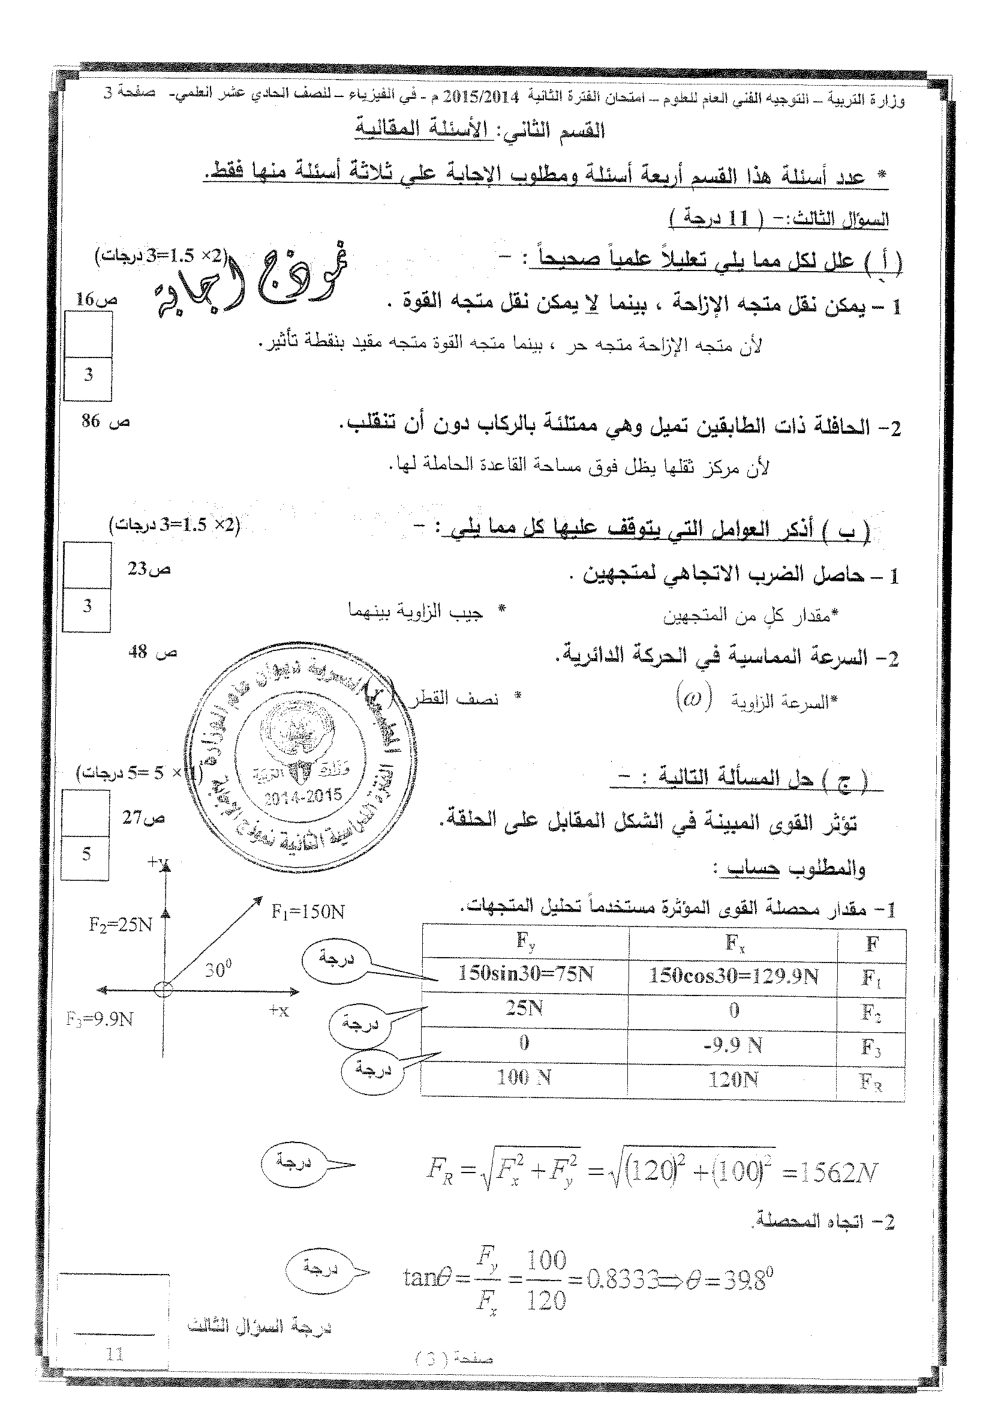 وزارة التربية – التوجيه الفني العام للعلوم – امتحان الفترة الثانية 2015/2014 م - في الفيزياء – للصف الحادي عشر العلمي- صفحة 3
القسم الثاني: الأسئلة المقالية
* عدد أسئلة هذا القسم أربعة أسئلة ومطلوب الإجابة على ثلاثة أسئلة منها فقط.
السؤال الثالث:- ( 11 درجة )
( أ ) علل لكل مما يلي تعليلاً علمياً صحيحاً : –
(2× 1.5=3 درجات)
نموذج اجابة
1 – يمكن نقل متجه الإزاحة ، بينما لا يمكن نقل متجه القوة .
ص16
لأن متجه الإزاحة متجه حر ، بينما متجه القوة متجه مقيد بنقطة تأثير.
3
2- الحافلة ذات الطابقين تميل وهي ممتلئة بالركاب دون أن تنقلب.
ص 86
لأن مركز ثقلها يظل فوق مساحة القاعدة الحاملة لها.
( ب ) أذكر العوامل التي يتوقف عليها كل مما يلي : –
(2× 1.5=3 درجات)
1 – حاصل الضرب الاتجاهي لمتجهين .
ص23
*مقدار كلٍ من المتجهين * جيب الزاوية بينهما
3
2- السرعة المماسية في الحركة الدائرية.
ص 48
*السرعة الزاوية (ω) * نصف القطر
وزارة التربية
2014-2015
( ج ) حل المسألة التالية : –
(1× 5 =5 درجات)
تؤثر القوى المبينة في الشكل المقابل على الحلقة.
ص27
والمطلوب حساب :
5
1- مقدار محصلة القوى المؤثرة مستخدماً تحليل المتجهات.
+y
F₁=150N
F₂=25N
30⁰
+x
F₃=9.9N
F Fₓ Fᵧ
F₁ 150cos30=129.9N 150sin30=75N
درجة
F₂ 0 25N
درجة
F₃ -9.9 N 0
درجة
F_R 120N 100 N
F_R = √(Fₓ² + Fᵧ²) = √((120)² + (100)²) = 156.2N
درجة
2- اتجاه المحصلة.
tanθ = Fᵧ/Fₓ = 100/120 = 0.8333 ⇒ θ = 39.8⁰
درجة
درجة السؤال الثالث
11
صفحة ( 3 )